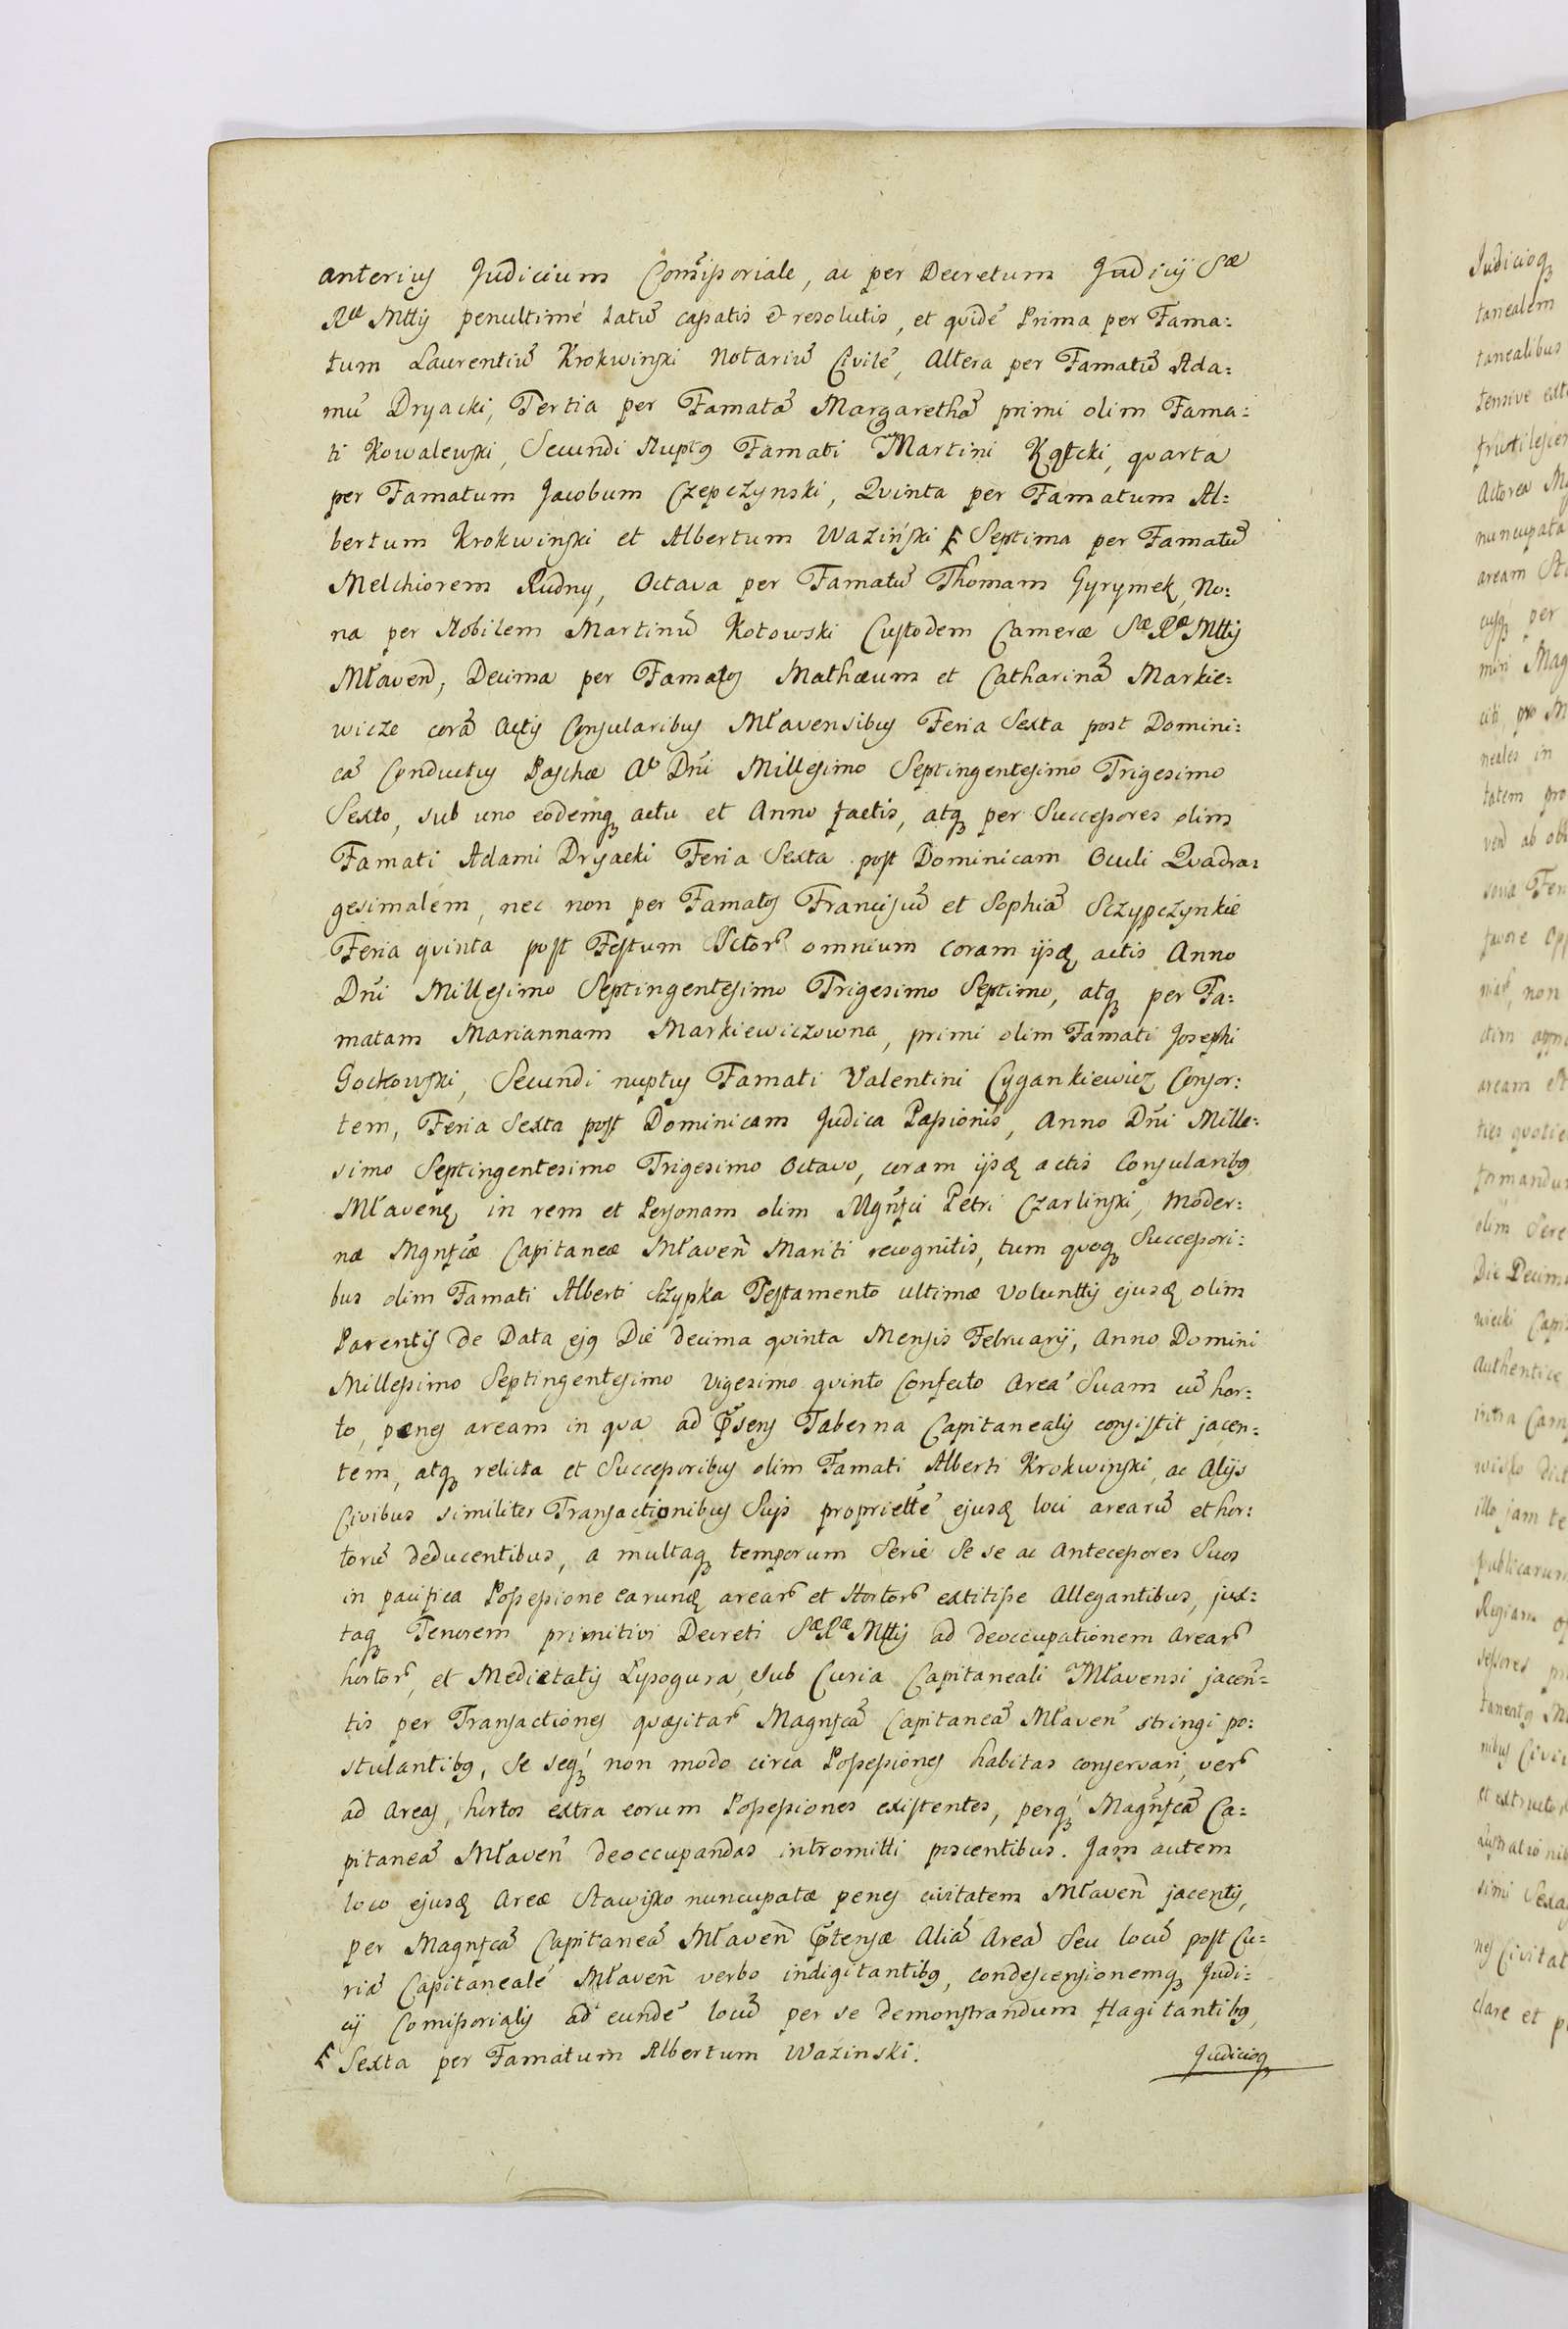 anterius Judicium Com̃issoriale, ac per Decretum Judicij Sæ
Ræ Mttis penultimé latũ cassatis & resolutis, et quidẽ Prima per Fama=
tum Laurentiũ Krokwinski Notariũ Civilẽ, Altera per Famatũ Ada=
mũ Dryacki, Tertia per Famatã Margarethã primi olim Fama=
ti Kowalewski, Secundi Nuptꝰ Famati Martini Kątcki, quarta
per Famatum Jacobum Czepczynski, Qvinta per Famatum Al=
bertum Krokwinski et Albertum Waziński Septima per Famatũ
Melchiorem Rudny, Octava per Famatũ Thomam Gyrymek, No=
na per Nobilem Martinũ Kotowski Custodem Cameræ Sæ Ræ Mttis
Mławen̄, Decima per Famatos Mathæum et Catharinã Markie=
wicze corã Actis Consularibus Mławensibus Feria Sexta post Domini=
cã Conductus Paschæ Aº Dñi Millesimo Septingentesimo Trigesimo
Sexto, sub uno eodemqꝫ actu et Anno factis, atqꝫ per Successores olim
Famati Adami Dryacki Feria Sexta post Dominicam Oculi Qvadra=
gesimalem, nec non per Famatos Franciscũ et Sophiã Sczypczynkie
Feria quinta post Festum SSctorũ omnium coram ijsdꝫ actis Anno
Dñi Millesimo Septingentesimo Trigesimo Septimo, atqꝫ per Fa=
matam Mariannam Markiewiczowna, primi olim Famati Josephi
Gockowski, Secundi nuptus Famati Valentini Cygankiewicz Consor=
tem, Feria Sexta post Dominicam Judica Passionis, Anno Dñi Mille=
simo Septingentesimo Trigesimo Octavo, coram ijsdꝫ actis Consularibꝰ
Mławenꝫ in rem et Personam olim Mgnfici Petri Czarlinski, Moder=
næ Mgnfcæ Capitaneæ Mławen̄ Mariti recognitis, tum quoqꝫ Successori=
bus olim Famati Alberti Szypka Testamento ultimæ Volunttis ejusdꝫ olim
Parentis de Data ejꝰ Die decima quinta Mensis Februarij, Anno Domini
Millessimo Septingentesimo vigesimo quinto Confecto Areã Suam cũ hor=
to, penes aream in qva ad Pr̃sens Taberna Capitanealis consistit jacen=
tem, atqꝫ relicta et Successoribus olim Famati Alberti Krokwinski, ac Alijs
Civibus similiter Transactionibus Suis propriettẽ ejusdꝫ loci arearũ et hor=
torũ deducentibus, a multaqꝫ temporum Serie Se se ac Antecessores Suos
in pacifica Possessione earundꝫ arearũ et Hortorũ extitisse Allegantibus, jux=
taqꝫ Tenorem primitivi Decreti Sæ Ræ Mttis ad deoccupationem Arearũ
hortorũ, et Medietatis Lysogura, Sub Curia Capitaneali Mławensi jacen=
tis per Transactiones quæsitarũ Magnfcã Capitaneã Mławen̄ stringi po=
stulantibꝰ, Se seqꝫ non modo circa Possessiones habitas conservari, verũ
ad Areas, hortos extra eorum Possessiones existentes, perqꝫ Magnfcã Ca=
pitaneã Mławen̄ deoccupandas intromitti poscentibus. Jam autem
loco ejusdꝫ Areæ Stawisko nuncupatæ penes civitatem Mławen̄ jacentis,
per Magnfcã Capitaneã Mławen̄ Prtensæ Aliã Areã Seu locũ post Cu=
riã Capitanealẽ Mławen̄ verbo indigitantibꝰ, condescensionemqꝫ Judi=
cij Comissorialis ad eundẽ locũ per se demonstrandum flagitantibꝰ,
Sexta per Famatum Albertum Wazinski. Judicioqꝫ
Judicioqꝫ
tanealem
tanealibus
nuncupata
per
neales in
tatem pro
non
aream
olim Sere
Authentice
illo jam te
publicarum
clare et p